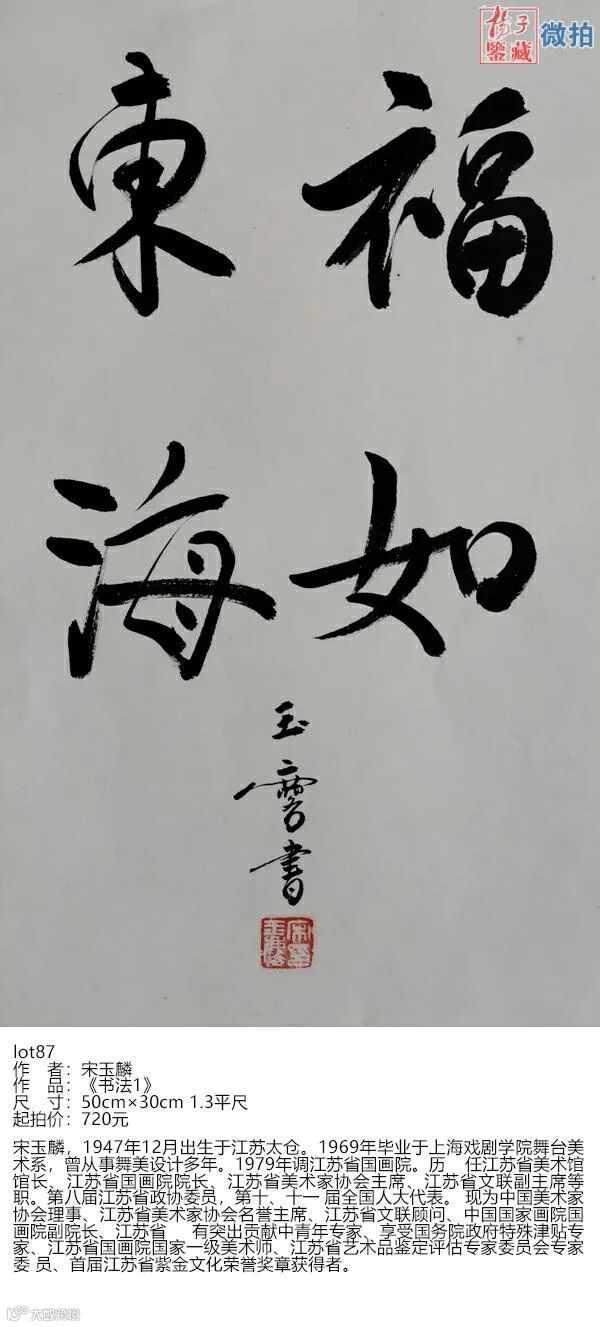 揚子
鑒藏
微拍
福如
東海
玉麐書
lot87
作 者：宋玉麟
作 品：《书法1》
尺 寸：50cm×30cm 1.3平尺
起拍价：720元
宋玉麟，1947年12月出生于江苏太仓。1969年毕业于上海戏剧学院舞台美
术系，曾从事舞美设计多年。1979年调江苏省国画院。历 任江苏省美术馆
馆长、江苏省国画院院长、江苏省美术家协会主席、江苏省文联副主席等
职。第八届江苏省政协委员，第十、十一 届全国人大代表。 现为中国美术家
协会理事、江苏省美术家协会名誉主席、江苏省文联顾问、中国国家画院国
画院副院长、江苏省 有突出贡献中青年专家、享受国务院政府特殊津贴专
家、江苏省国画院国家一级美术师、江苏省艺术品鉴定评估专家委员会专家
委 员、首届江苏省紫金文化荣誉奖章获得者。
大数跨境